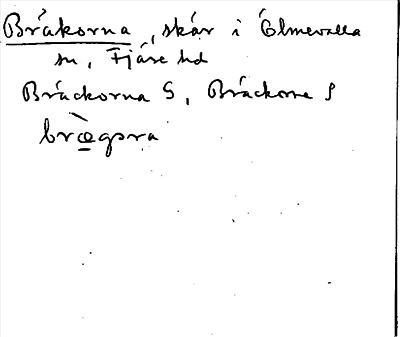 Bråkorna, skär i Ölmevalla
sn, Fjäre hd
Bråckorna S, Bråckorne S
bræ̀gɔra